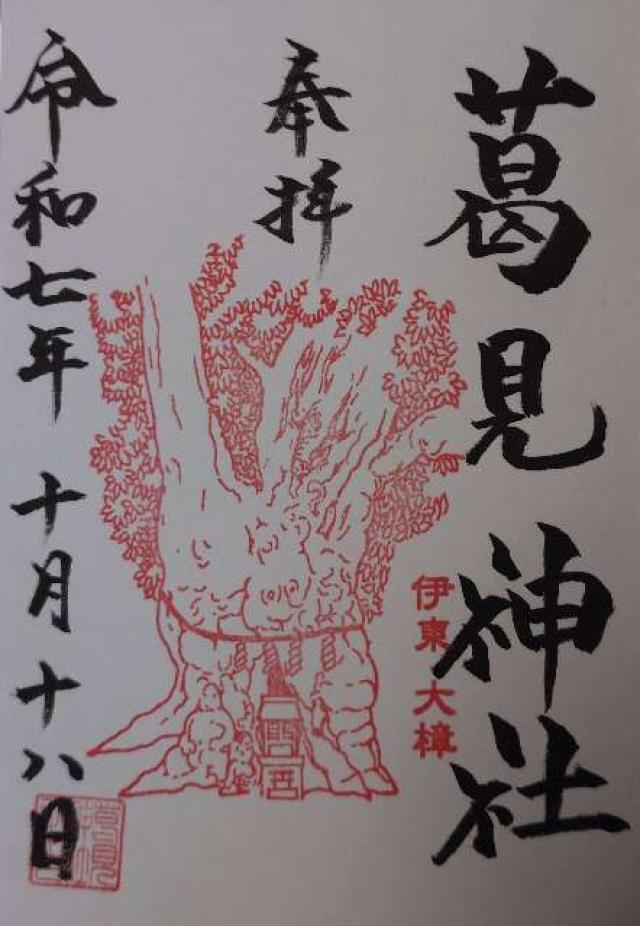 葛見神社
奉拝
伊東大樟
令和七年 十月十八日